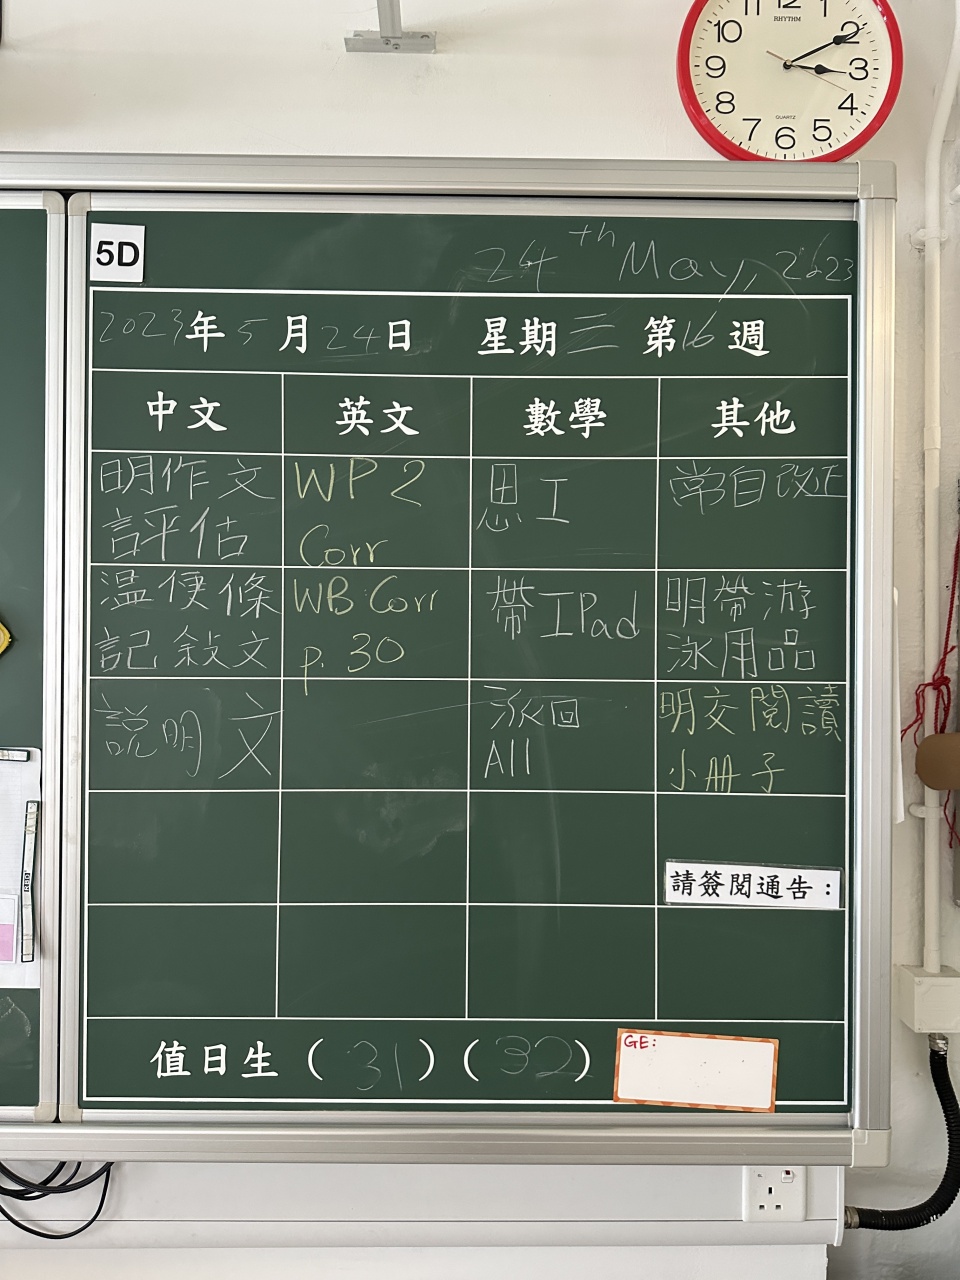 11 12 1
RHYTHM
10 2
9 3
8 4
QUARTZ
7 6 5
5D
24th May, 2023
2023年5月24日 星期三 第16週
中文 英文 數學 其他
明作文
評估
WP 2
Corr
思工
常自改正
温便條
記敍文
WB Corr
p. 30
帶IPad
明帶游
泳用品
説明文
派回
All
明交閱讀
小冊子
請簽閱通告：
值日生（31）（32）
GE: